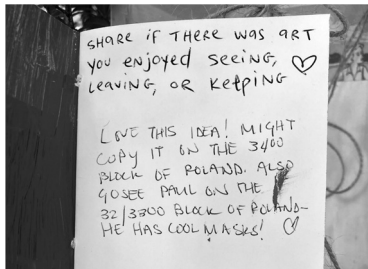 SHARE IF THERE WAS ART
YOU ENJOYED SEEING, ♡
LEAVING, OR KEEPING
LOVE THIS IDEA! MIGHT
COPY IT ON THE 3400
BLOCK OF ROLAND. ALSO
GO SEE PAUL ON THE
32/3300 BLOCK OF ROLAND–
HE HAS COOL MASKS! ♡